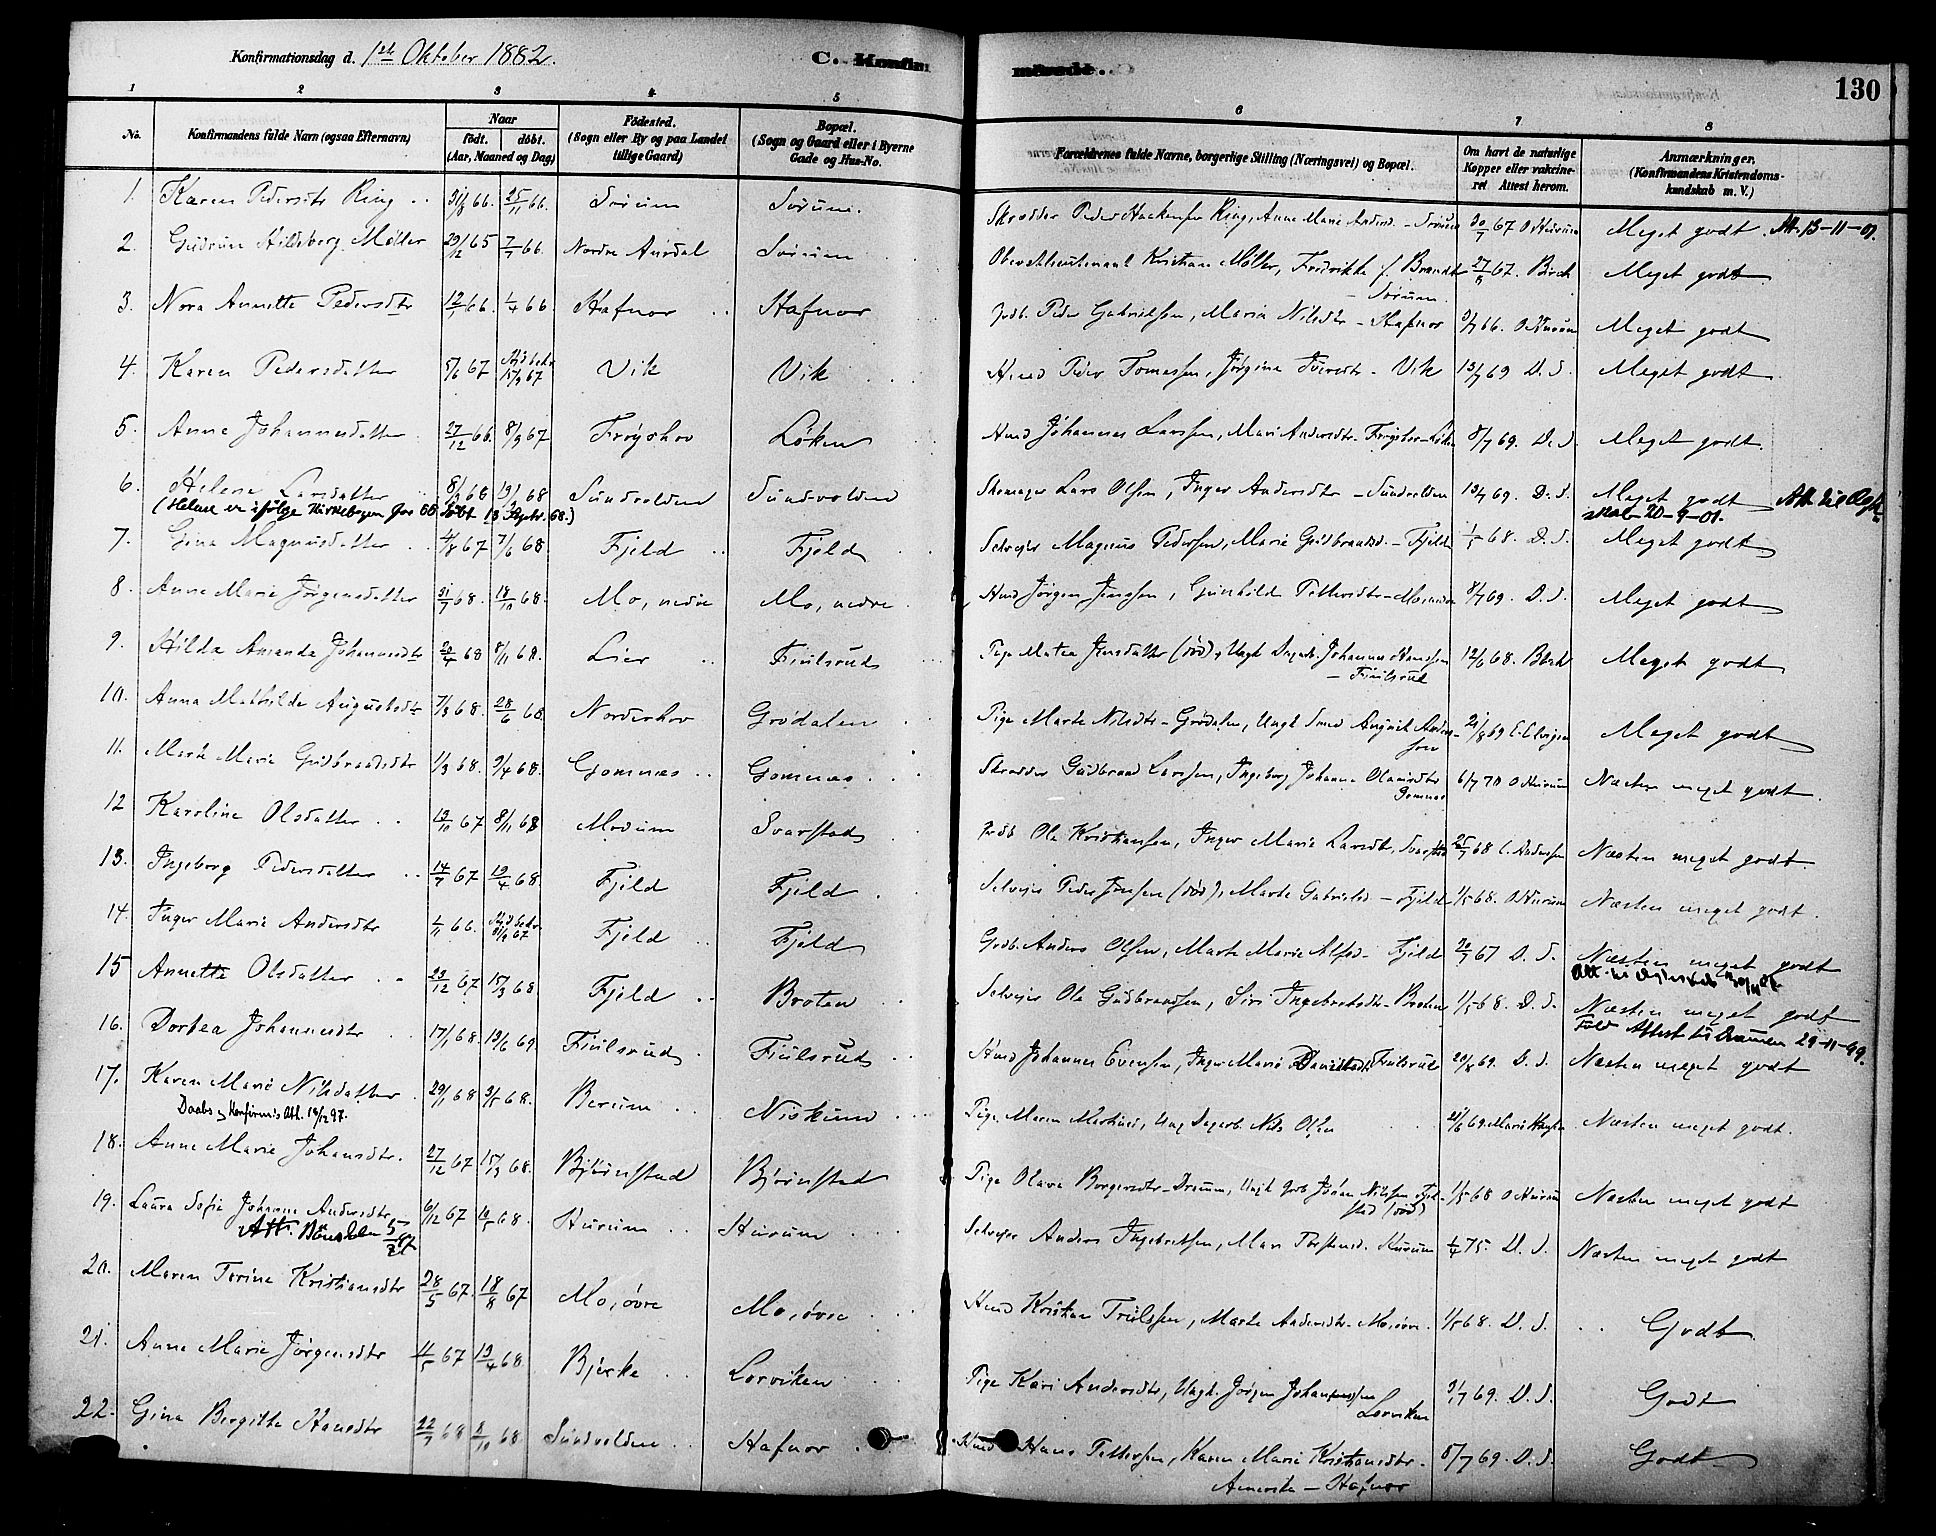 Konfirmationsdag d. 1ste Oktober 1882.
C. Konfirmerede.
130
1 2 3 4 5 6 7 8
No. Konfirmandens fulde Navn (ogsaa Efternavn) Naar födt. döbt. (Aar, Maaned og Dag) Födested. (Sogn eller By og paa Landet tillige Gaard) Bopæl. (Sogn og Gaard eller i Byerne Gade og Hus-No. Forældrenes fulde Navne, borgerlige Stilling (Næringsvei) og Bopæl. Om havt de naturlige Kopper eller vakcineret Attest herom. Anmærkninger. (Konfirmandens Kristendomskundskab m. V.)
1. Karen Pedersdtr Ring 31/8 66. 25/11 66. Sörum Sörum. Skrædder Peder Haakensen Ring, Anne Marie Andersd. - Sörum 30/7 67 O Hurum Meget godt. Att. 13-11-01.
2. Gudrun Hildeborg Møller 29/12 65 7/7 66. Nordre Aurdal Sörum Oberstlieutenant Kristian Møller, Fredrikke f. Brandt - Sörum. 27/8 67. Birch Meget godt
3. Nora Annette Pedersdtr 12/1 66. 1/4 66. Hafnor Hafnor Grdb. Peder Gabrielsen, Maria Nilsdtr - Hafnor 9/7 66 O Hurum Meget godt
4. Karen Pedersdatter 5/6 67 15/9 67 Vik Vik Husmd Peder Tomassen, Jørgine Iversdtr - Vik 13/7 69 D. S. Meget godt
5. Anne Johannesdatter 27/12 66. 8/9 67 Frøyshov Løken Husmd Johannes Larssen, Mari Andersdtr - Frøyshov - Løken 8/7 69. D. S. Meget godt
6. Helene Larsdatter 8/9 68 13/9 68 Sundvolden Sundvolden Skomager Lars Olsen, Inger Andersdtr - Sundvolden 13/7 69. D. S. Meget godt
(Helene er ifølge Kirkebogen for 68 døbt 13 Septr. 68.) 20-9-01.
7. Gina Magnusdatter 4/8 67 7/6 68. Fjeld Fjeld Selveier Magnus Pedersen, Marie Gudbrandsd. - Fjeld 1/5 68. D. S. Meget godt
8. Anne Marie Jörgensdatter 31/7 68. 18/10 68. Mo, nedre Mo, nedre. Husmd Jörgen Jenssen, Gunhilde Pettersdtr - Mo nedre 8/7 69. D. S. Meget godt
9. Hilda Amanda Johannesdtr 20/4 68 8/11 68. Lier Fiulsrud Pige Matea Jensdatter (död), Ungk. Dagarb. Johannes Hanssen - Fiulsrud 12/6 68. Meget godt
10. Anna Mathilde Augustsdtr 7/3 68. 28/6 68. Norderhov Grödalen Pige Marte Nilsdtr - Grödalen, Ungk. Smed August Anderssen 21/8 69 Meget godt
11. Marte Marie Gudbrandsdtr 1/3 68. 9/4 68. Gomnæs Gomnæs Skrædder Gudbrand Larssen, Ingeborg Johanne Olavesdtr Gomnæs 6/7 70 O Hurum Næsten meget godt.
12 Karoline Olsdatter 19/10 67 8/11 68 Modum Svarstad Grdb Ole Kristiansen, Inger Marie Larsdtr, Svarstad 25/7 68 C. Andersen Næsten meget godt.
13. Ingeborg Pedersdatter 14/7 67 19/4 68. Fjeld Fjeld Selveier Peder Jensen (död), Marte Gabrielsd - Fjeld 1/5 68. O Hurum Næsten meget godt.
14. Inger Marie Andersdtr 1/11 66. Fjeld Fjeld Grdb. Anders Olsen, Marte Marie Alfsd - Fjeld 20/7 67 D. S. Næsten meget godt
15 Annette Olsdatter 23/12 67 15/3 68 Fjeld Broten Selveier Ole Gudbrandsen, Siri Ingebretsdtr - Broten 1/5 68. D. S. Næsten meget godt
16. Dortea Johannesdtr 17/1 68. 13/6 69. Fiulsrud Fiulsrud Husmd Johannes Evensen, Inger Marie Danielsdtr Fiulsrud 20/8 69. D. S. Næsten meget godt
Attest til Drammen 29-11-99.
17. Karen Marie Nilsdatter 29/1 68 3/5 68. Berum Niskund Pige Maren Martinsd, Ung Dagarb. Nils Olsen 21/6 69 Næsten meget godt.
Daabs og Konfirm.s Att. 18/12 97.
18. Anne Marie Johansdtr. 27/12 67 15/3 68. Bjørnstad Bjørnstad Pige Olava Borgersdtr - Dramm, Ungk Grdb Johan Nilssen (död) 1/5 68 O Hurum Næsten meget godt
19. Laura Sofie Johanne Andersdtr 6/12 67 10/5 68. Hurum Hurum Selveier Anders Ingebretsen, Mari Thorstensd. Hurum 1/4 75. D. S. Næsten meget godt
20. Maren Terine Kristiansdtr 28/5 67. 18/8 67 Mo, övre Mo, övre Husmd Kristian Truelssen, Marte Andersdtr. Mo övre. 1/5 68. D. S. Godt
21. Anne Marie Jörgensdtr 11/5 67 19/4 68. Bjerke Lorviken Pige Kari Andersdtr, Ungk. Jörgen Johannessen Lorviken 9/7 69. D. S. Godt
22. Gina Bergitte Hansdtr 22/7 68 68 Sundvolden Hafnor Husmd Hans Pettersen, Karen Marie Kristiansdtr. Amerika - Hafnor 8/7 69. D. S. Godt